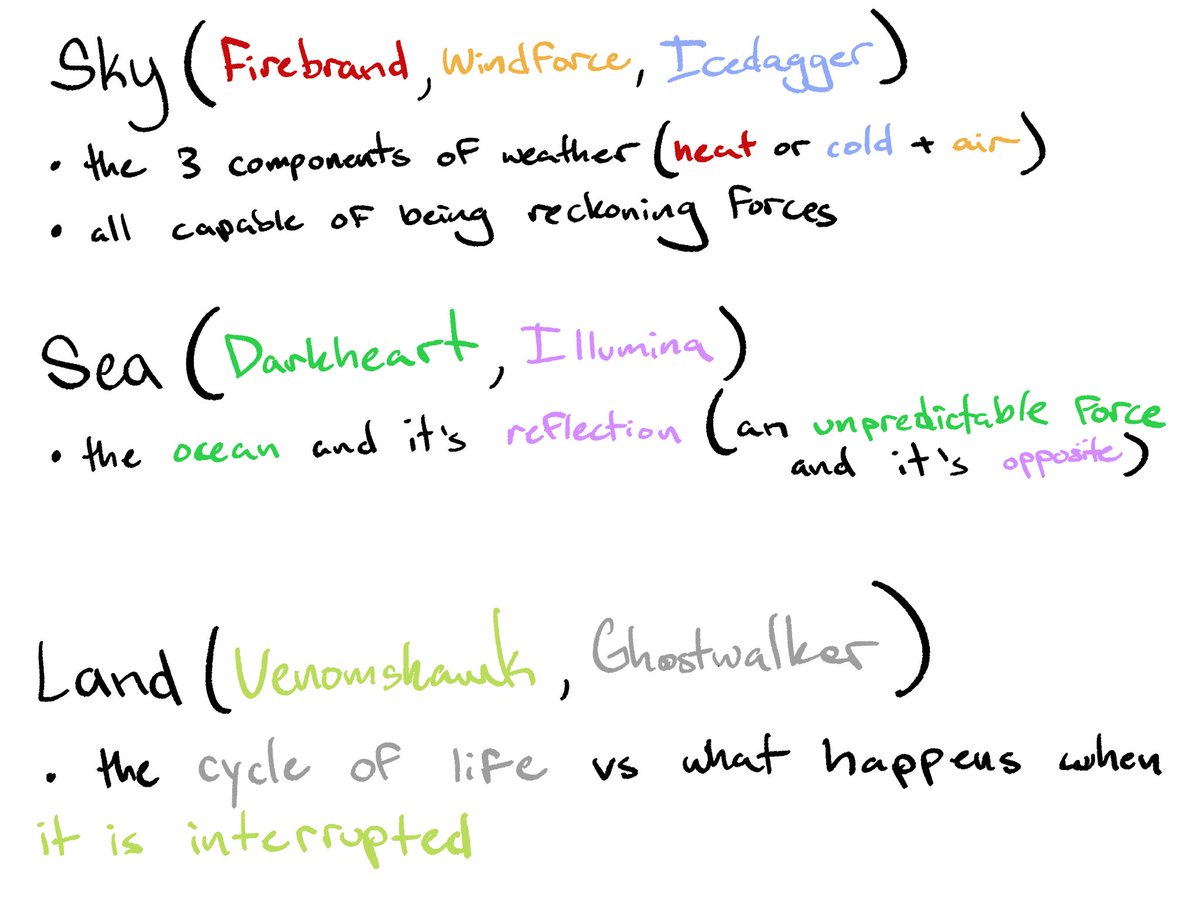 Sky (Firebrand, Windforce, Icedagger)
• the 3 components of weather (heat or cold + air)
• all capable of being reckoning forces
Sea (Darkheart, Illumina)
• the ocean and it's reflection (an unpredictable force
and it's opposite)
Land (Venomshank, Ghostwalker)
• the cycle of life vs what happens when
it is interrupted